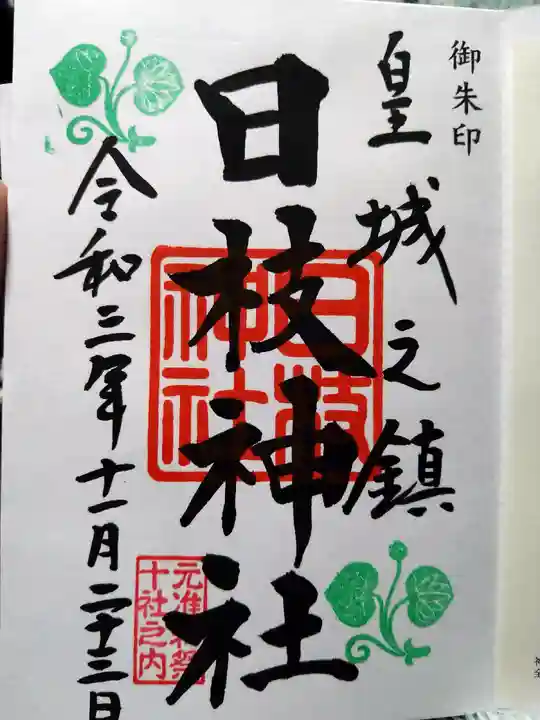 御朱印
皇城之鎮
日枝神社
日枝神社
元准勅祭
十社之内
令和三年十一月二十三日